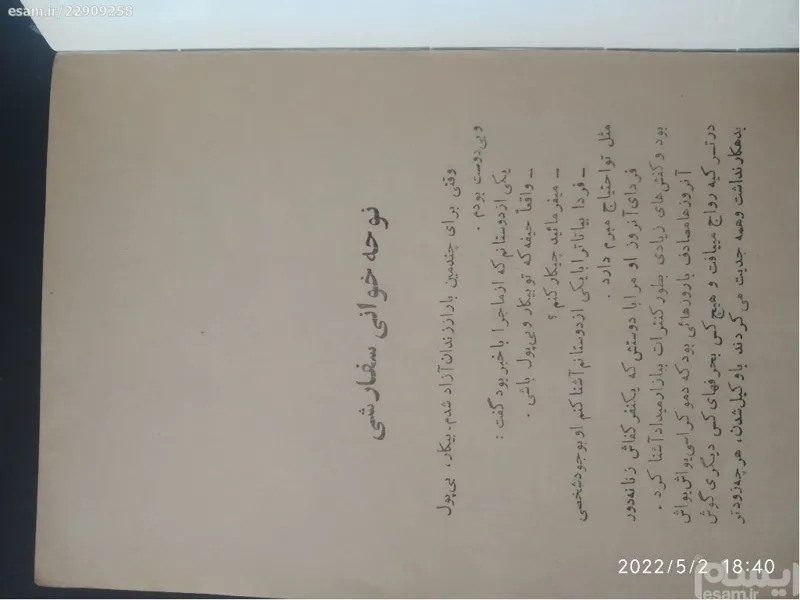 esam.ir/22909258
نوحه خوانی سفارشی
وقتی برای چندمین بار از زندان آزاد شدم. بیکار، بی‌پول
و بی‌دوست بودم.
یکی از دوستانم که از ماجرا با خبر بود گفت:
ـ واقعاً حیفه که تو بیکار و بی‌پول باشی.
ـ میفرمائید چیکار کنم؟
ـ فردا بیا تا ترا با یکی از دوستانم آشنا کنم او بوجود شخصی
مثل تو احتیاج مبرم دارد.
فردای آنروز او مرا با دوستش که یکنفر کفاش زنانه‌دوز
بود و کفش‌های زیادی بطور کنترات ببازار میداد آشنا کرد.
آنروزها مصادف با روزهائی بود که دموکراسی یواش یواش
در ترکیه رواج مییافت و هیچ کس بحرفهای کس دیگری گوش
بدهکار نداشت و همه جدیت می‌کردند با وکیل شدن، هر چه زودتر
2022/5/2 18:40
ایسام
esam.ir